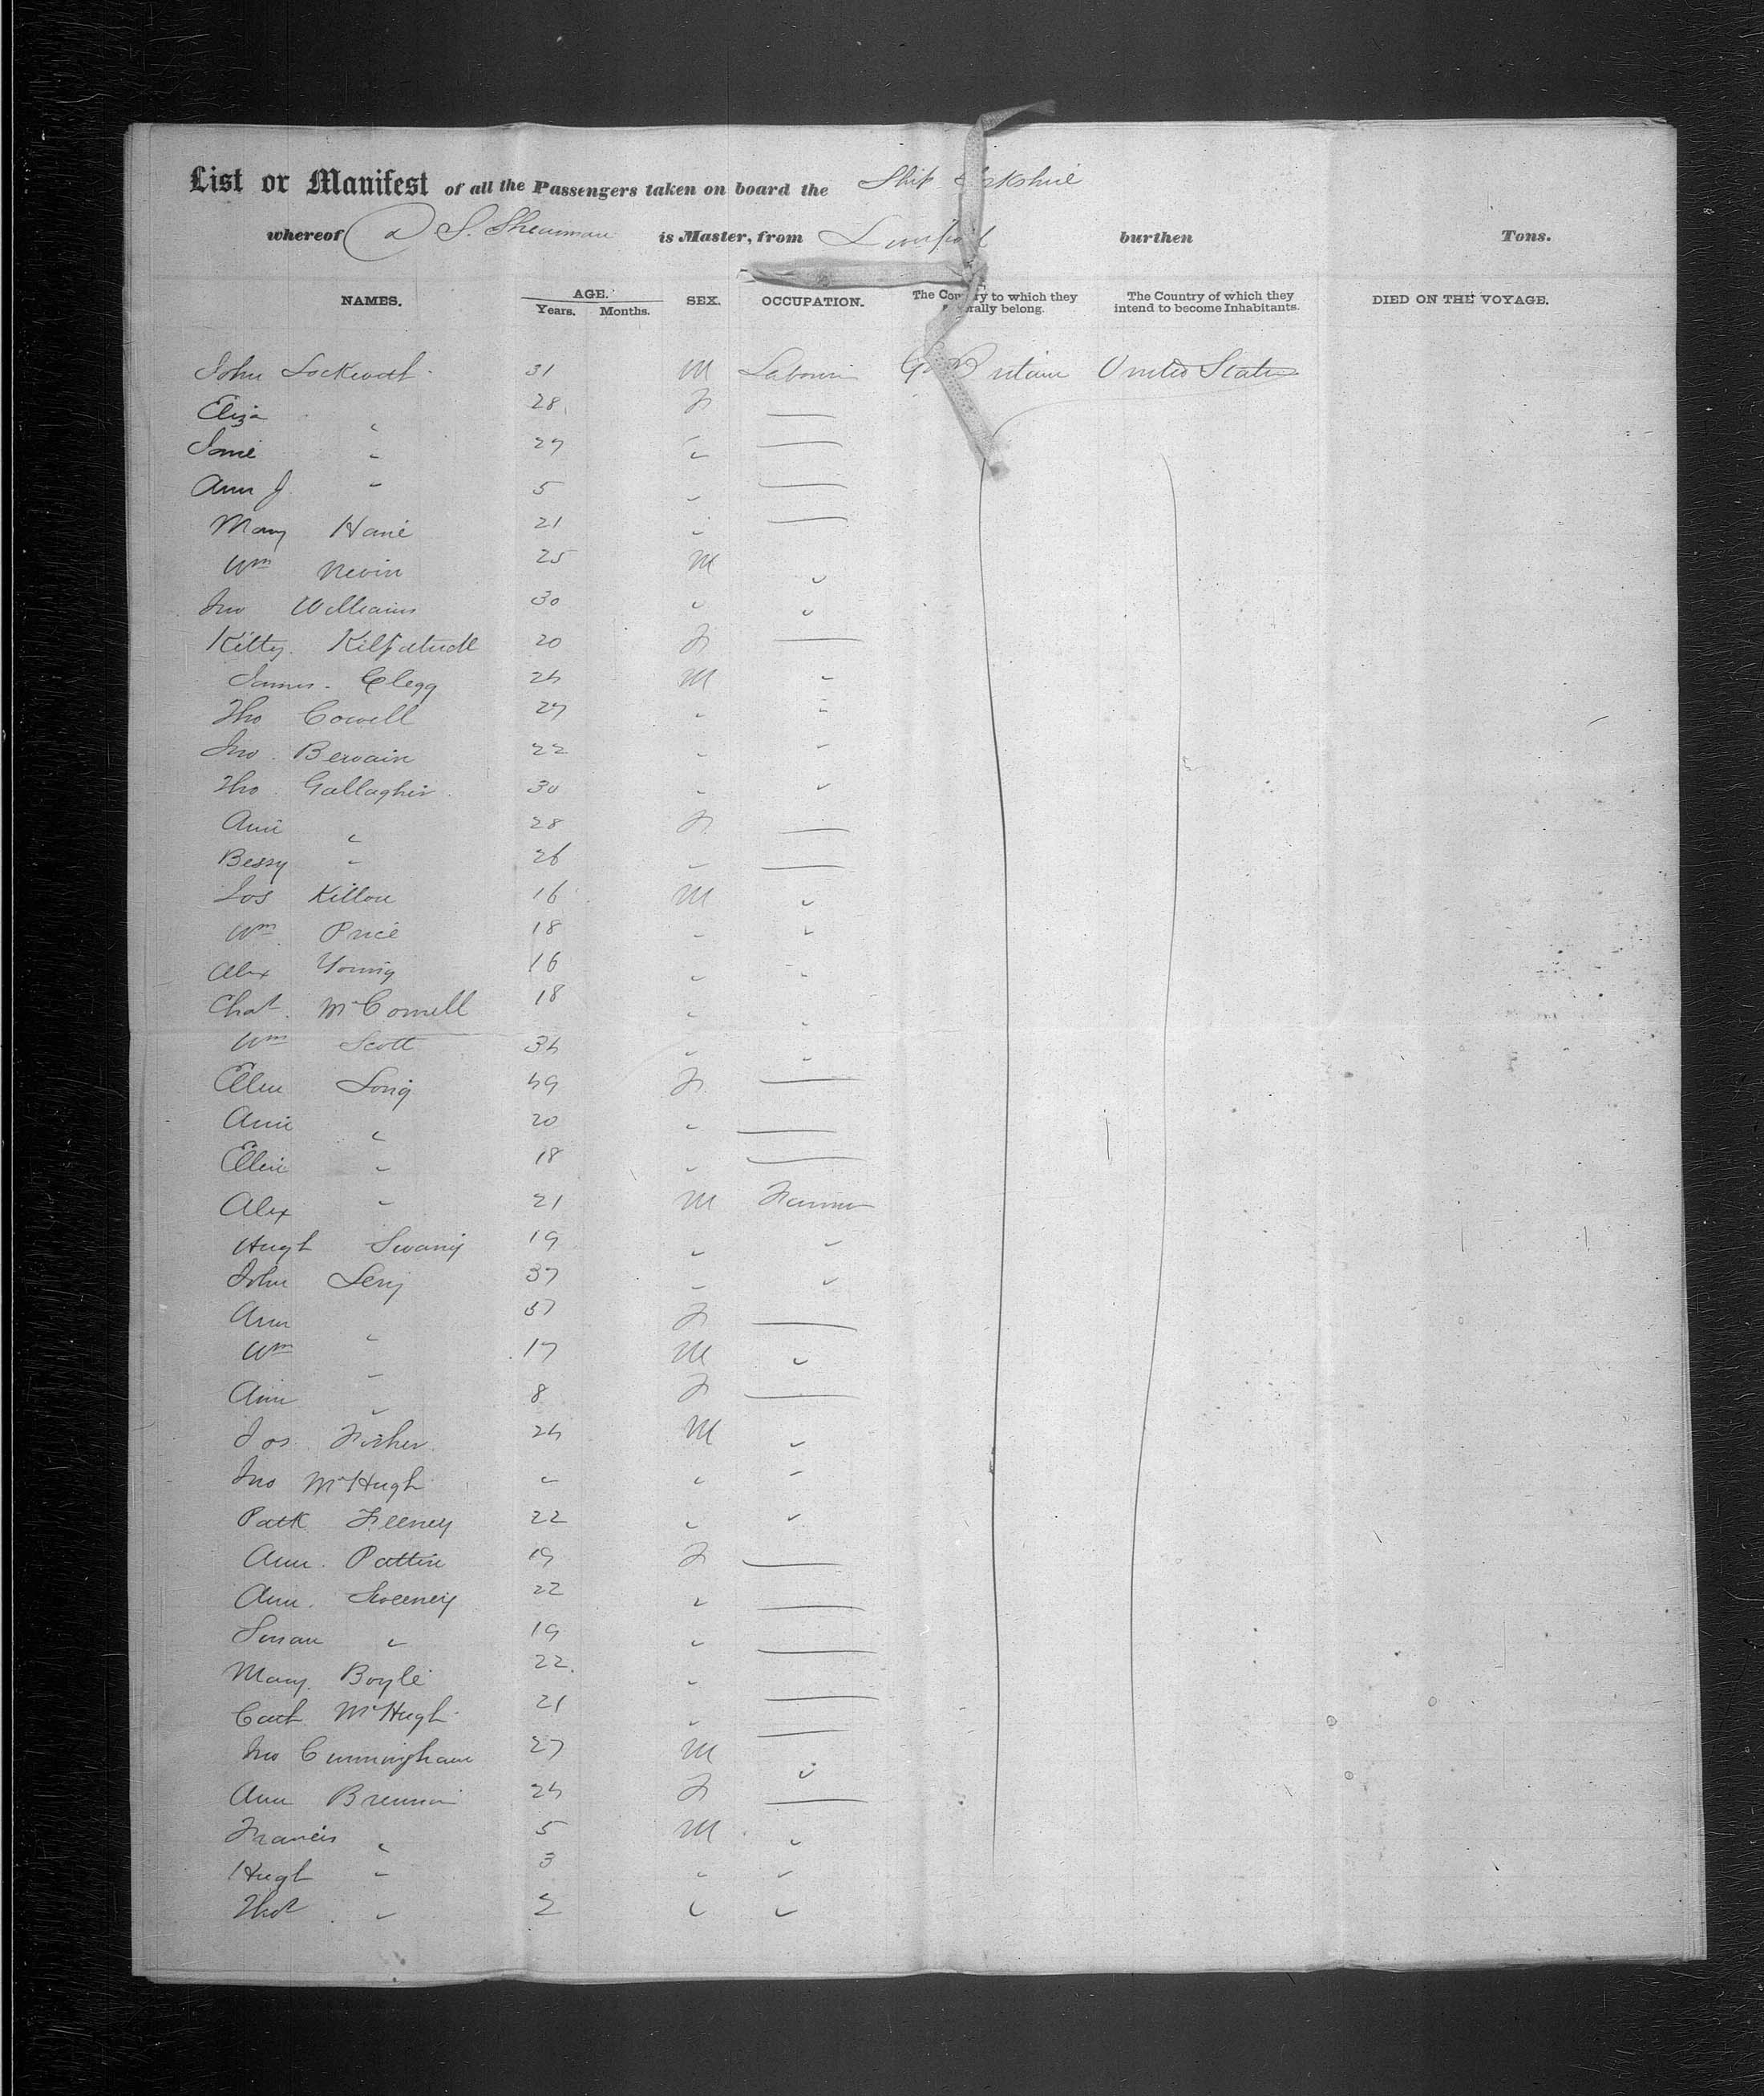 List or Manifest of all the Passengers taken on board the Ship
whereof D S. Shearman is Master, from Liverpool burthen Tons.
NAMES. AGE. Years. Months. SEX. OCCUPATION. The Country to which they severally belong. The Country of which they intend to become Inhabitants. DIED ON THE VOYAGE.
John 31 M Labourer Gt Britain United States
Eliza " 28 F —
" 27 " —
Ann J " 5 " —
Mary 21 " —
Wm Nevin 25 M "
Jno Williams 30 " "
Kitty Kilpatrick 20 F —
James Clegg 24 M "
Tho Cowell 27 " "
Jno 22 " "
Tho Gallagher 30 " "
Ann " 28 F —
Bessy " 26 " —
Jos Killon 16 M "
Wm Price 18 " "
Alex Young 16 " "
Chas McConnell 18 " "
Wm Scott 34 " "
Ellen Long 49 F —
Ann " 20 " —
Ellen " 18 " —
Alex " 21 M Farmer
Hugh 19 " "
John 37 " "
Ann " 37 F —
Wm " 17 M "
Ann " 8 F —
Jos Fisher 24 M "
Jno McHugh " " "
Patk Feeney 22 " "
Ann Patten 19 F —
Ann Sweeney 22 " —
Susan " 19 " —
Mary Boyle 22 " —
Cath McHugh 21 " —
Jno Cunningham 27 M "
Ann Brennan 24 F —
Francis " 5 M "
Hugh " 3 " "
Thos " 2 " "